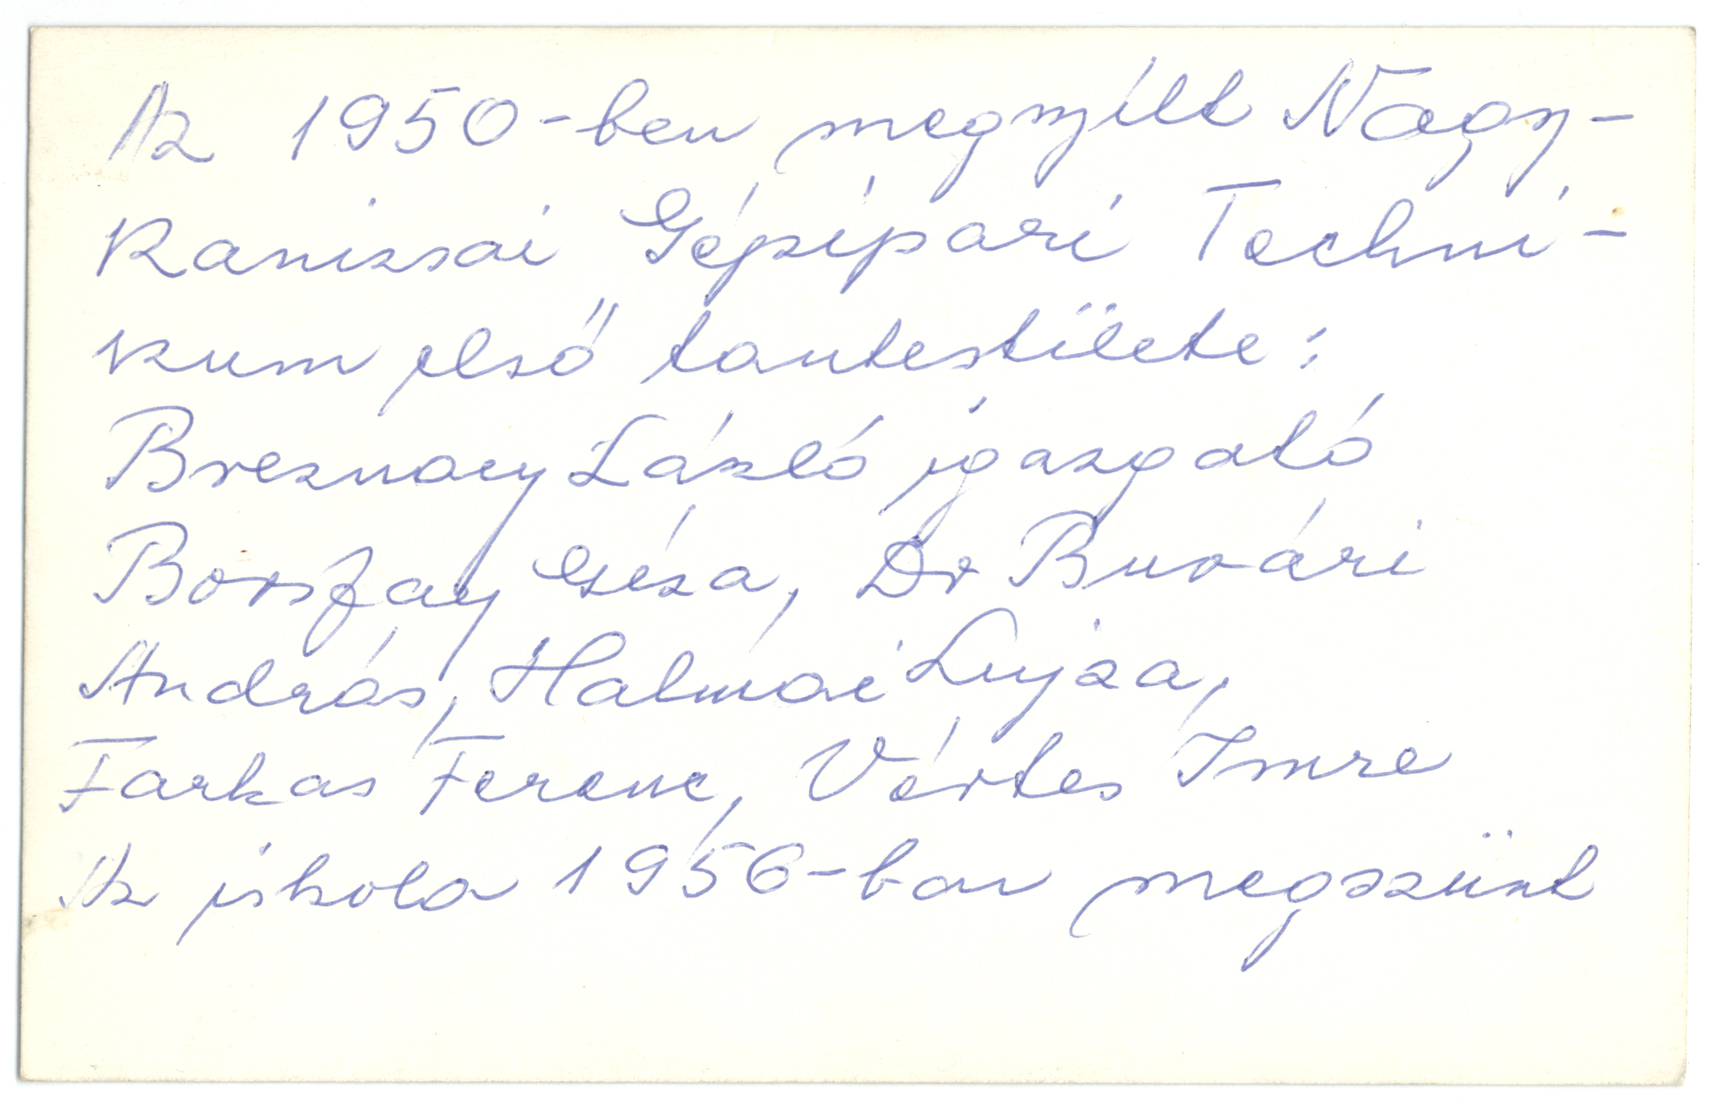 Az 1950-ben megnyílt Nagy-
kanizsai Gépipari Techni-
kum első tantestülete:
Breznay László igazgató
Borsfay Géza, Dr Buvári
András, Halmai Lujza,
Farkas Ferenc, Vértes Imre
Az iskola 1956-ban megszünt